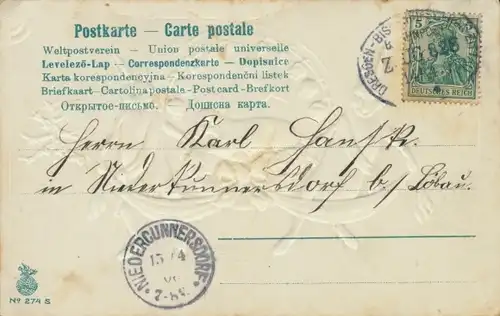 Postkarte – Carte postale
Weltpostverein – Union postale universelle
Levelező-Lap – Correspondenzkarte – Dopisnice
Karta korespondencyjna – Korespondenční listek
Briefkaart – Cartolina postale – Post card – Brefkort
Открытое-письмо. Дописна карта.
5
DEUTSCHES REICH
DRESDEN-BIS
Herrn Karl
in Niederkunnersdorf b/ Löbau.
NIEDERCUNNERSDORF
15/4
7-8V.
No 274 S